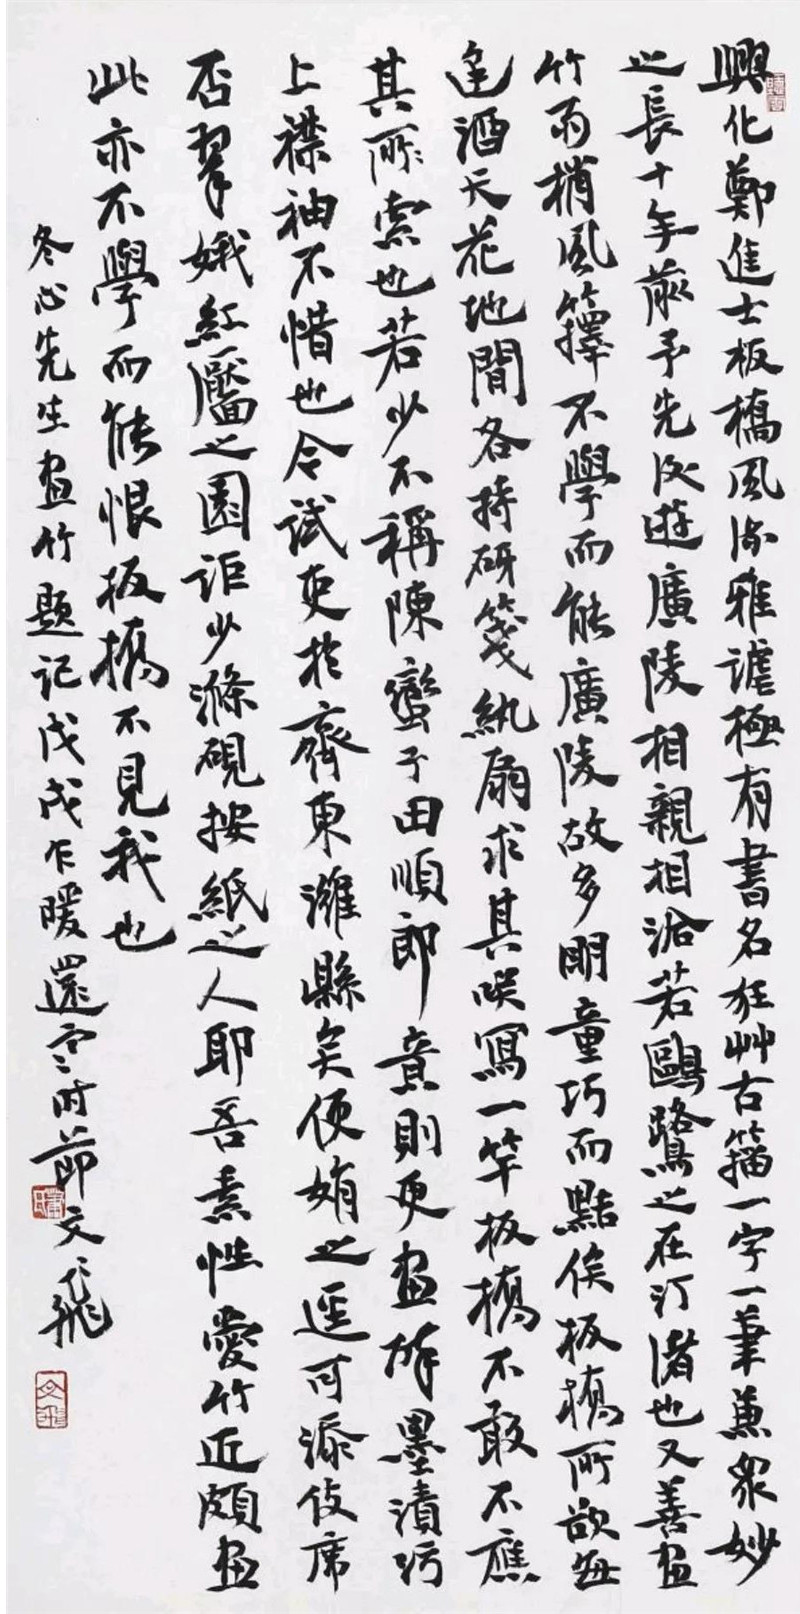 興化鄭進士板橋風流雅謔極有書名狂艸古籀一字一筆兼眾妙
之長十年前予先後遊廣陵相親相洽若鷗鷺之在汀渚也又善畫
竹雨梢風籜不學而能廣陵故多明童巧而黠俟板橋所欲每
逢酒天花地間各持砑箋紈扇求其咲寫一竿板橋不敢不應
其所索也若少不稱陳蠻子田順郎意則更畫醉墨漬污
上襟袖不惜也今試吏於齊東濰縣矣便娟之逕可添伎席
否翠娥紅靨之園詎少滌硯按紙之人耶吾素性愛竹近頗畫
此亦不學而能恨板橋不見我也
冬心先生画竹题记戊戌乍暖還寒时節文飛